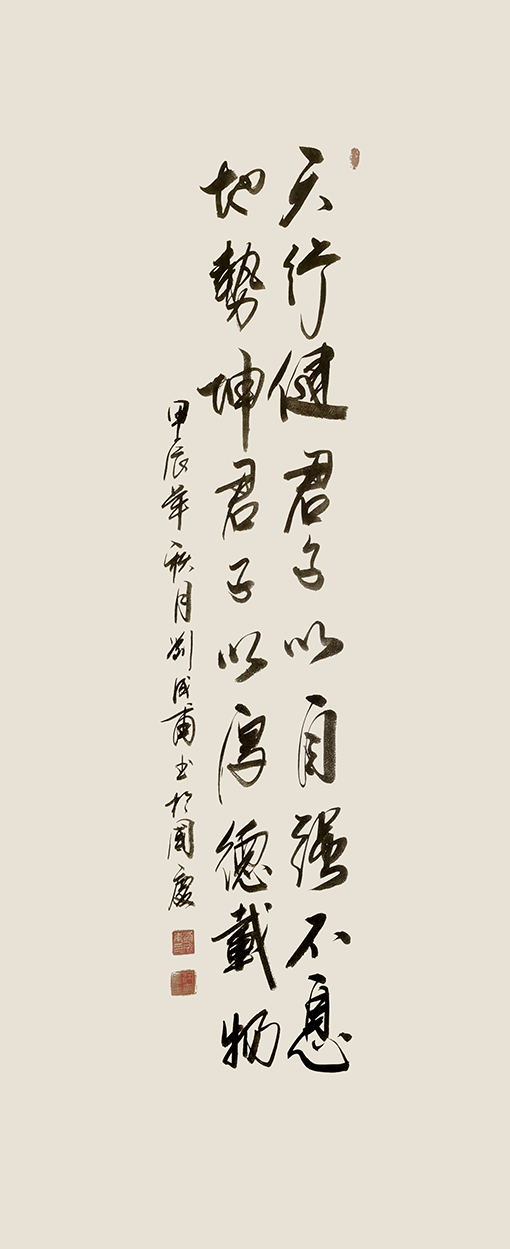 天行健君子以自强不息
地勢坤君子以厚德載物
甲辰年秋月劉成甫书於國慶